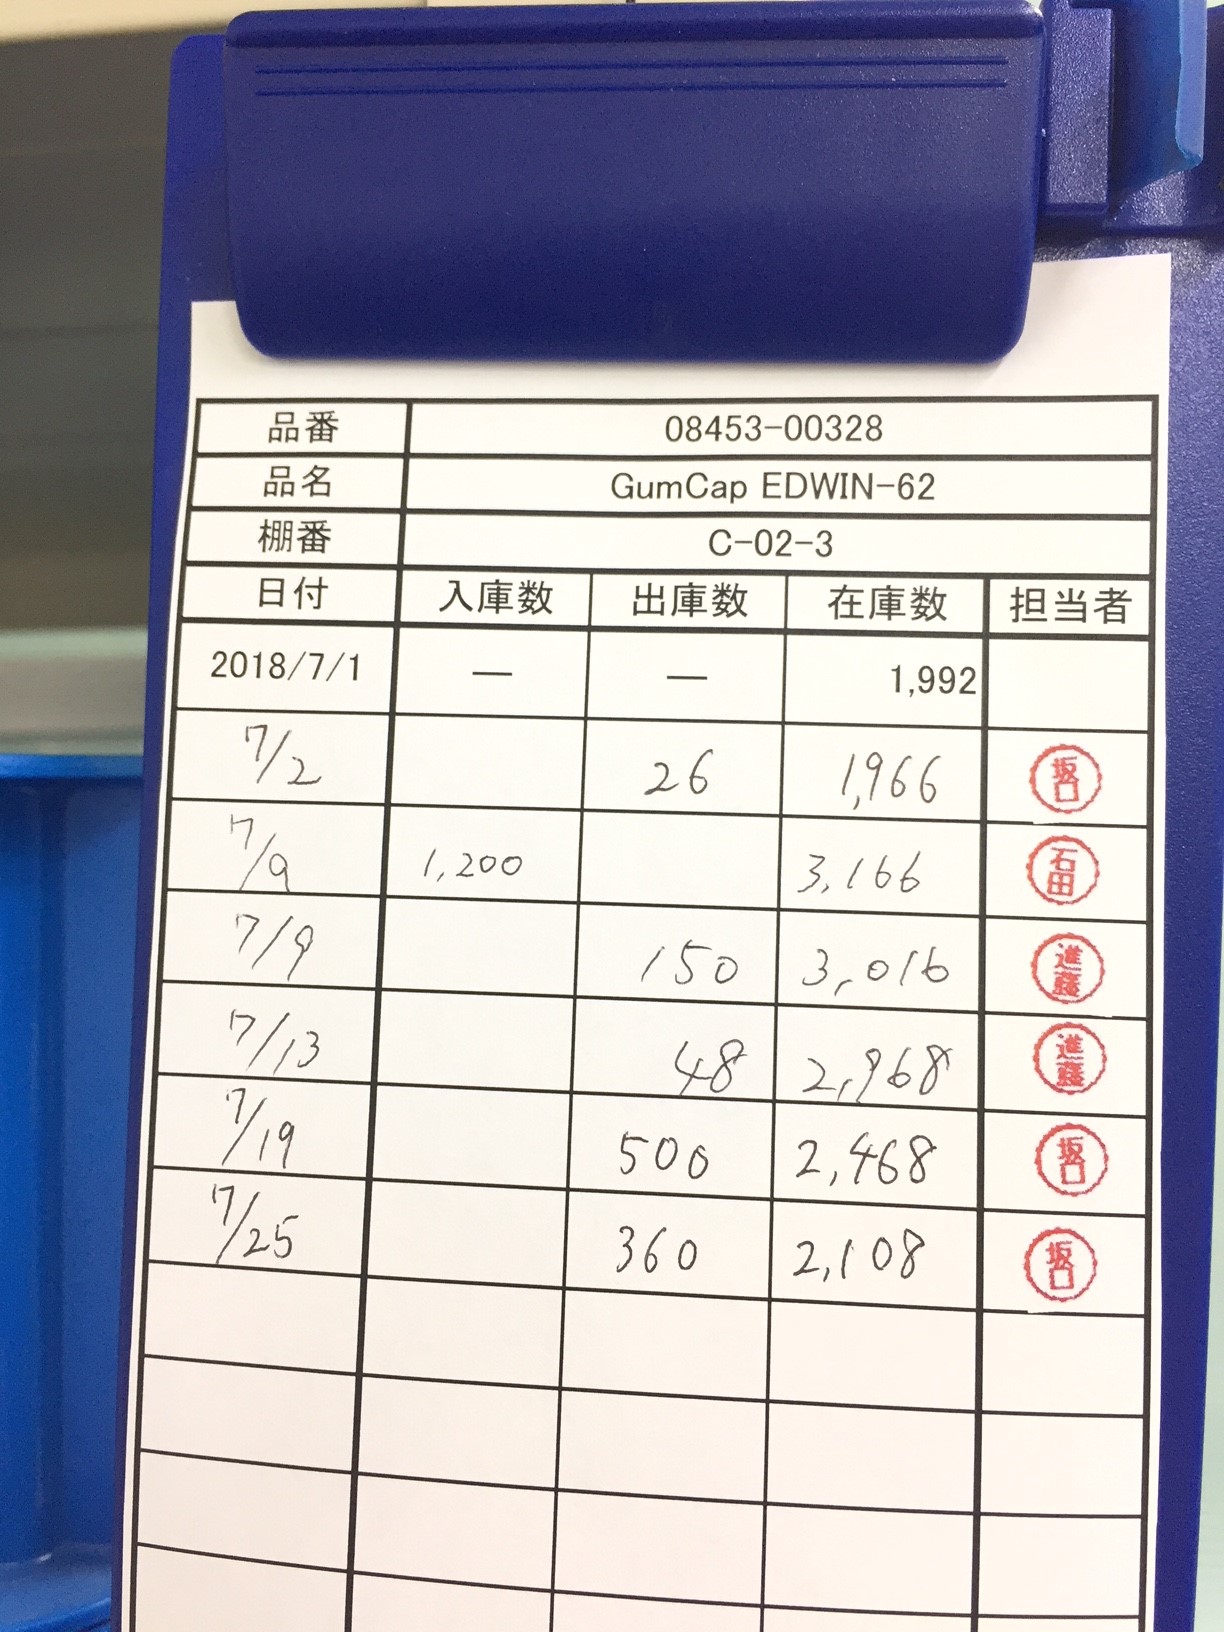 品番 08453-00328
品名 GumCap EDWIN-62
棚番 C-02-3
日付 入庫数 出庫数 在庫数 担当者
2018/7/1 — — 1,992
7/2 26 1,966 坂口
7/9 1,200 3,166 石田
7/9 150 3,016 進藤
7/13 48 2,968 進藤
7/19 500 2,468 坂口
7/25 360 2,108 坂口